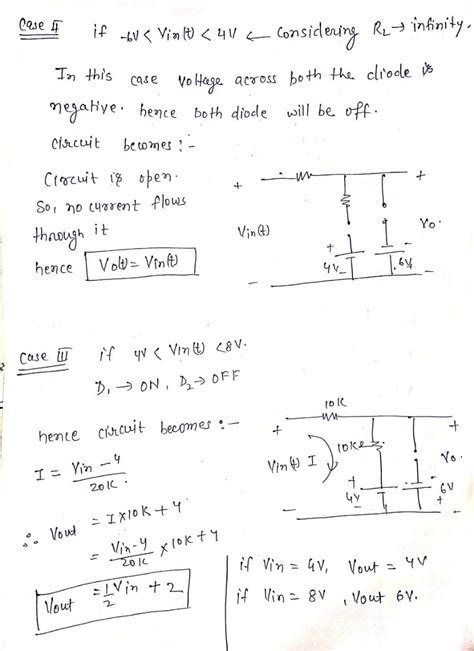 Case II if -6V < Vin(t) < 4V ← Considering RL → infinity.
In this case voltage across both the diode is
negative. hence both diode will be off.
Circuit becomes :-
Circuit is open.
So, no current flows
through it
hence Vo(t) = Vin(t)
+ +
Vin(t) Vo.
+ -
4V - 6V
- -
Case III if 4V < Vin(t) < 8V.
D1 → ON, D2 → OFF
hence circuit becomes :-
10K
+ +
10K
Vin(t) I Vo.
+ -
4V 6V
- + -
I = Vin - 4 / 20K.
∴ Vout = I×10K + 4
= Vin-4 / 20K × 10K + 4
Vout = 1/2 Vin + 2
if Vin = 4V, Vout = 4V
if Vin = 8V, Vout 6V.